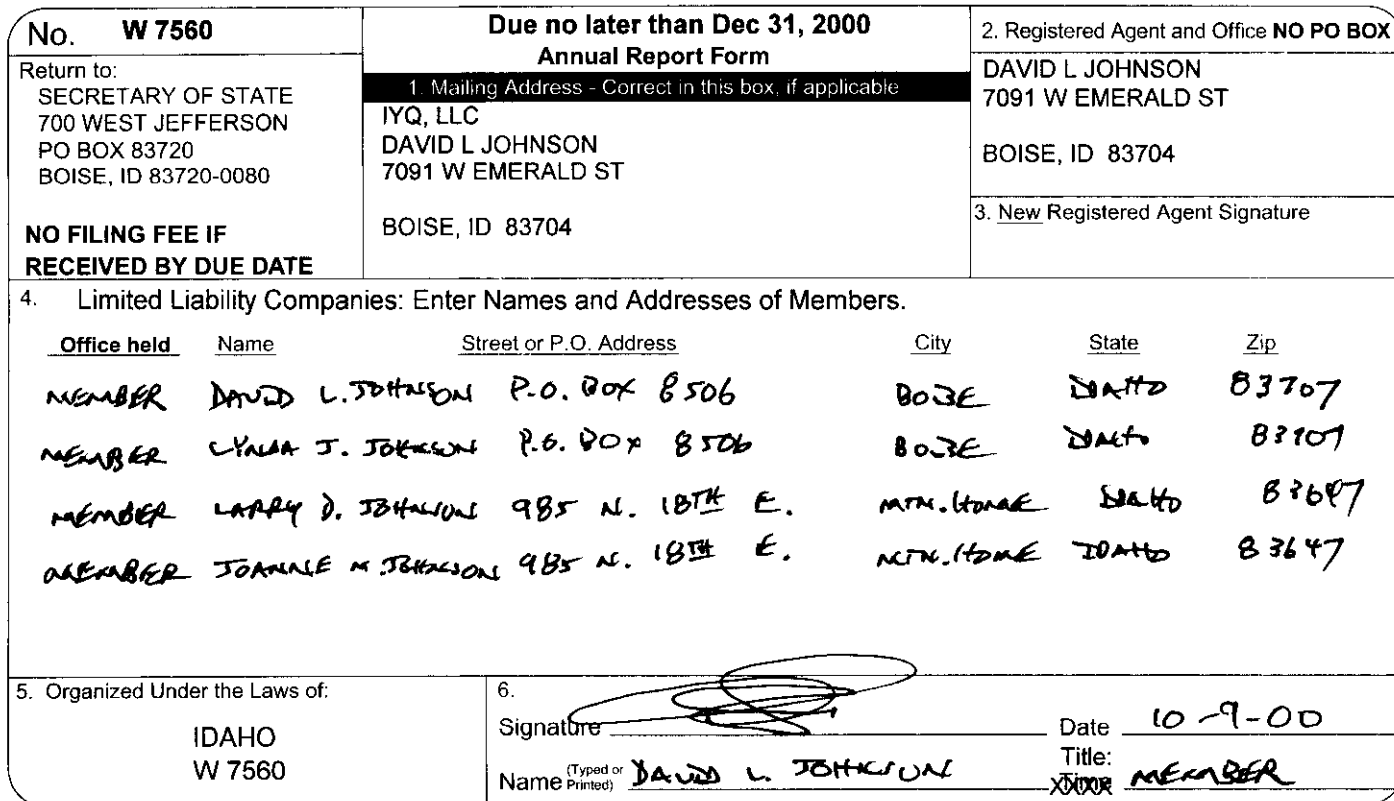 No. W 7560
Return to:
SECRETARY OF STATE
700 WEST JEFFERSON
PO BOX 83720
BOISE, ID 83720-0080
NO FILING FEE IF
RECEIVED BY DUE DATE
Due no later than Dec 31, 2000
Annual Report Form
1. Mailing Address - Correct in this box, if applicable
IYQ, LLC
DAVID L JOHNSON
7091 W EMERALD ST
BOISE, ID 83704
2. Registered Agent and Office NO PO BOX
DAVID L JOHNSON
7091 W EMERALD ST
BOISE, ID 83704
3. New Registered Agent Signature
4. Limited Liability Companies: Enter Names and Addresses of Members.
Office held Name Street or P.O. Address City State Zip
MEMBER DAVID L. JOHNSON P.O. BOX 8506 BOISE IDAHO 83707
MEMBER LYNDA J. JOHNSON P.O. BOX 8506 BOISE IDAHO 83707
MEMBER LARRY D. JOHNSON 985 N. 18TH E. MTN. HOME IDAHO 83647
MEMBER JOANNE M JOHNSON 985 N. 18TH E. MTN. HOME IDAHO 83647
5. Organized Under the Laws of:
IDAHO
W 7560
6.
Signature Date 10-9-00
Name (Typed or Printed) DAVID L. JOHNSON Title: MEMBER